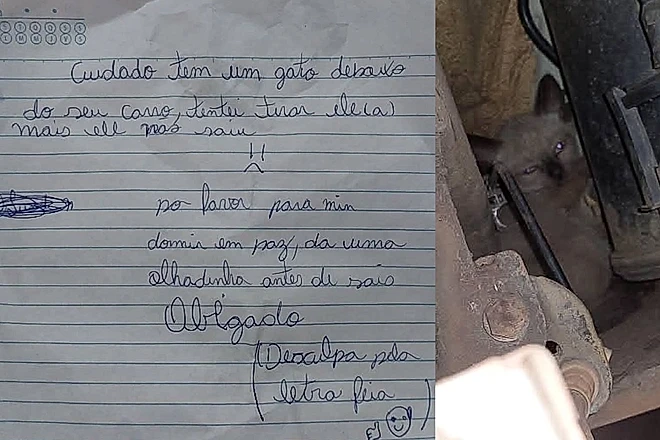 Cuidado tem um gato debaixo
do seu carro, tentei tirar ele(a)
mais ele não saiu
po favor para min
dormir em paz, da uma
olhadinha antes de saio
Obigado
(Desculpa pela
letra feia)